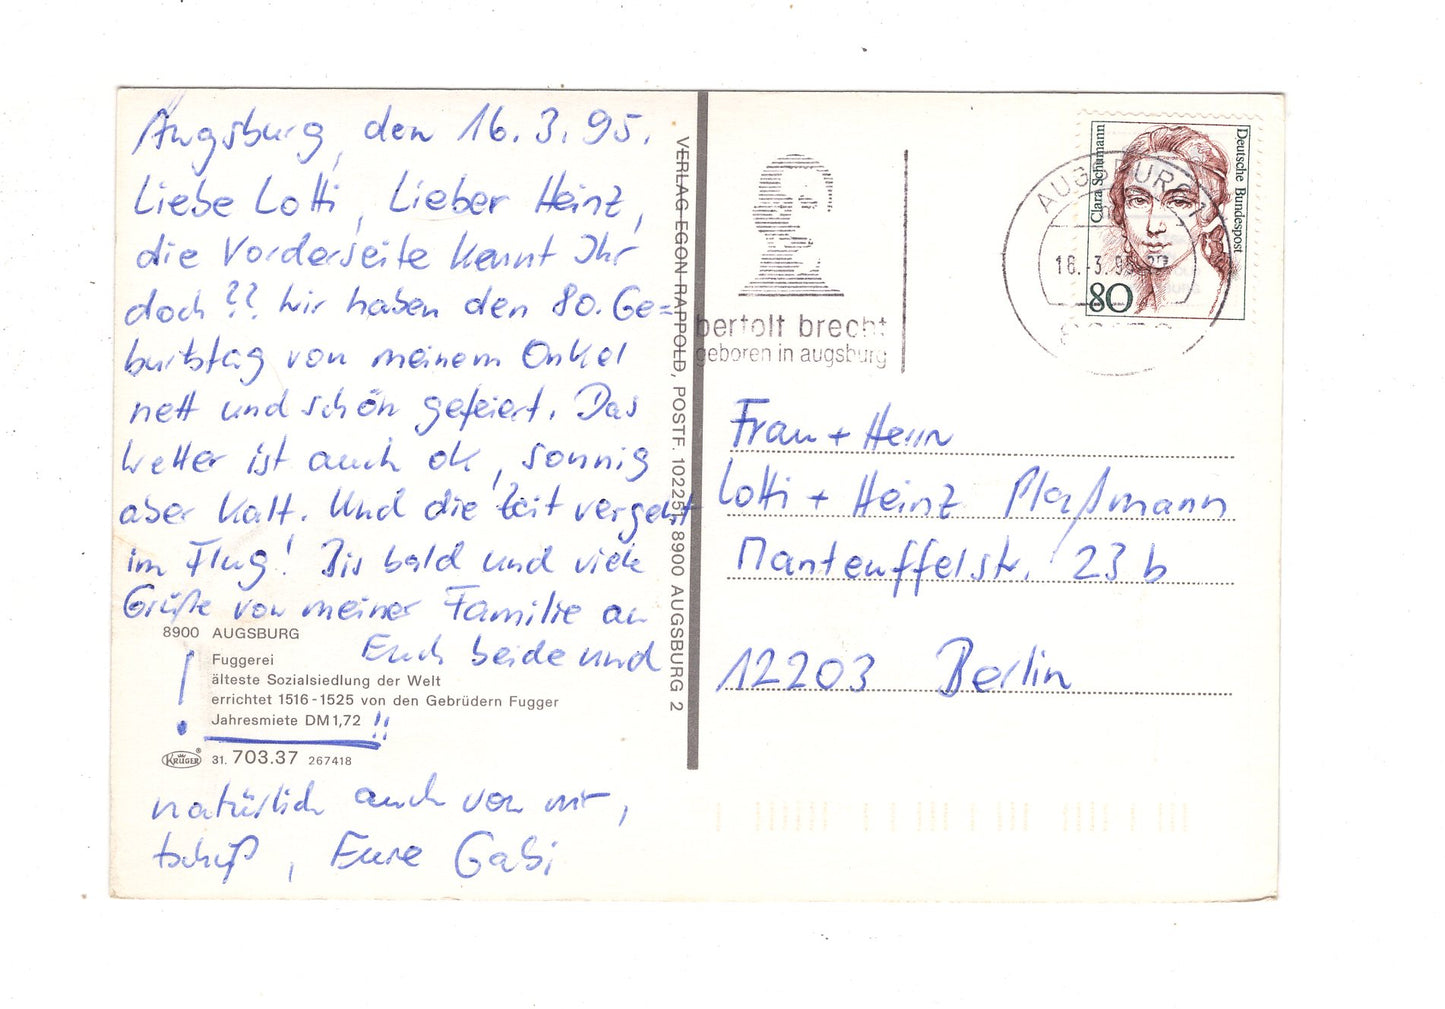 Augsburg, den 16.3.95.
Liebe Lotti, Lieber Heinz,
die Vorderseite kennt Ihr
doch?? Wir haben den 80. Ge=
burtstag von meinem Onkel
nett und schön gefeiert. Das
Wetter ist auch ok, sonnig
aber kalt. Und die Zeit vergeht
im Flug! Bis bald und viele
Grüße von meiner Familie an
Euch beide und
8900 AUGSBURG
!
Fuggerei
älteste Sozialsiedlung der Welt
errichtet 1516-1525 von den Gebrüdern Fugger
Jahresmiete DM 1,72 !!
KRÜGER® 31. 703.37 267418
natürlich auch von mir,
tschüß, Eure Gabi
VERLAG EGON RAPPOLD, POSTF. 102251, 8900 AUGSBURG 2
bertolt brecht
geboren in augsburg
AUGSBURG 1
16.-3.95
Clara Schumann
Deutsche Bundespost
80
Frau + Herrn
Lotti + Heinz Plaßmann
Manteuffelstr. 23 b
12203 Berlin